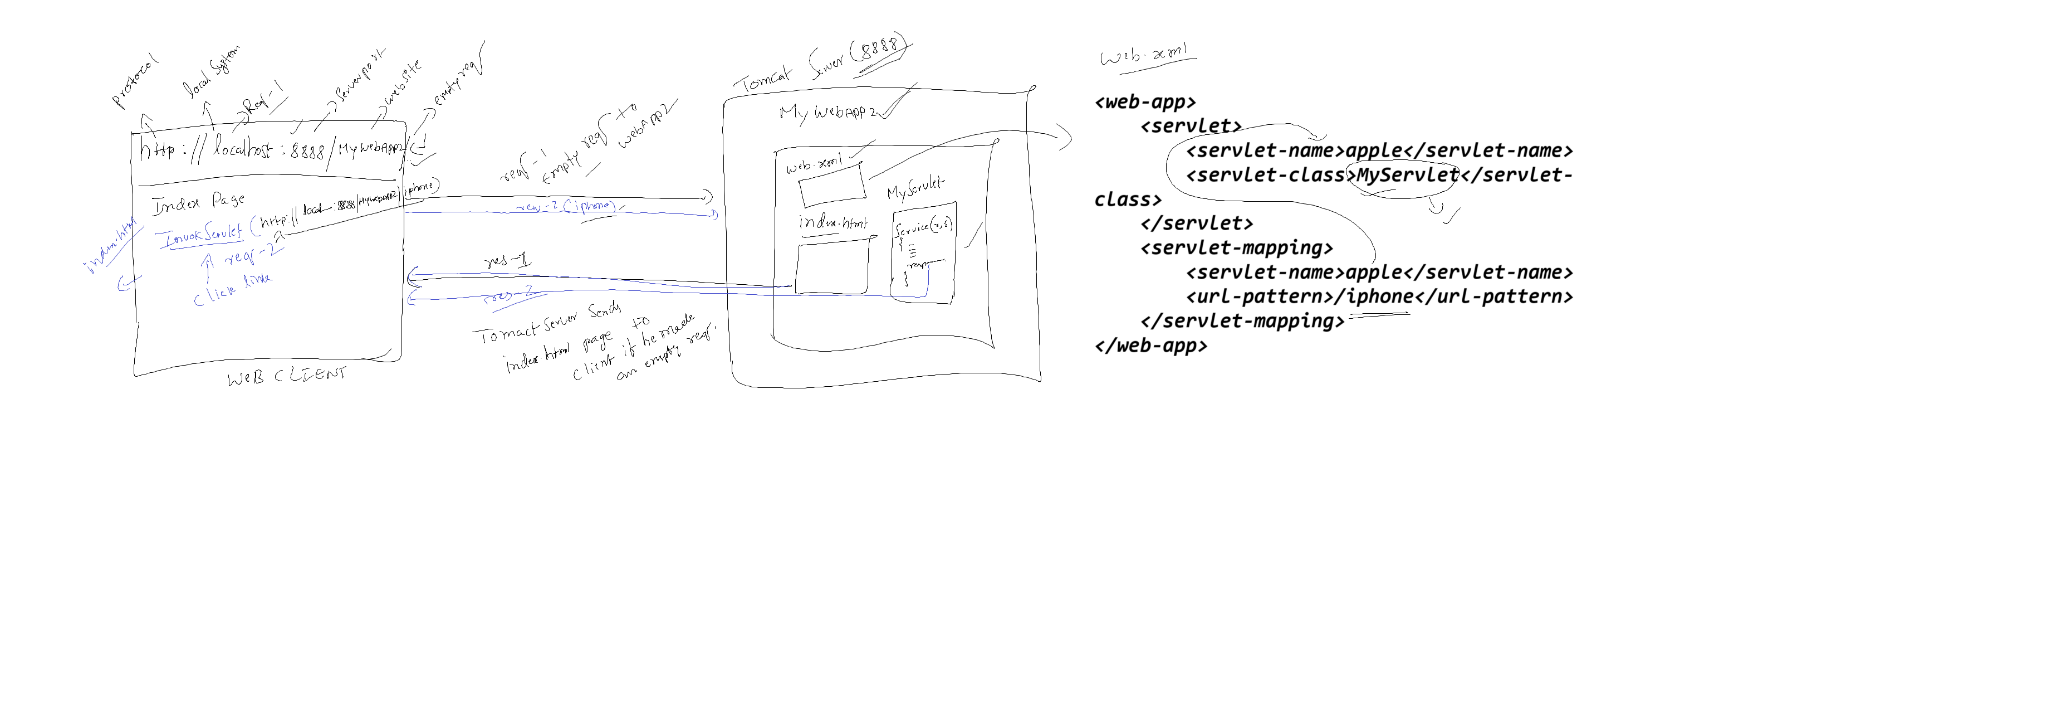 protocol
local System
Req-1
Server port
website
empty req
http://localhost:8888/MyWebAPP2/
Index Page
InvokServlet (http://local:8888/MyWebAPP2/iphone)
req-2
click link
index.html
WEB CLIENT
req-1
empty req to
webAPP2
req-2 (iphone)
res-1
res-2
Tomact Server Sends
index.html page to
client if he made
an empty req.
Tomcat Server (8888)
MyWebAPP2
web.xml
MyServlet
index.html
Service(r,s)
{
}
web.xml
<web-app>
<servlet>
<servlet-name>apple</servlet-name>
<servlet-class>MyServlet</servlet-
class>
</servlet>
<servlet-mapping>
<servlet-name>apple</servlet-name>
<url-pattern>/iphone</url-pattern>
</servlet-mapping>
</web-app>